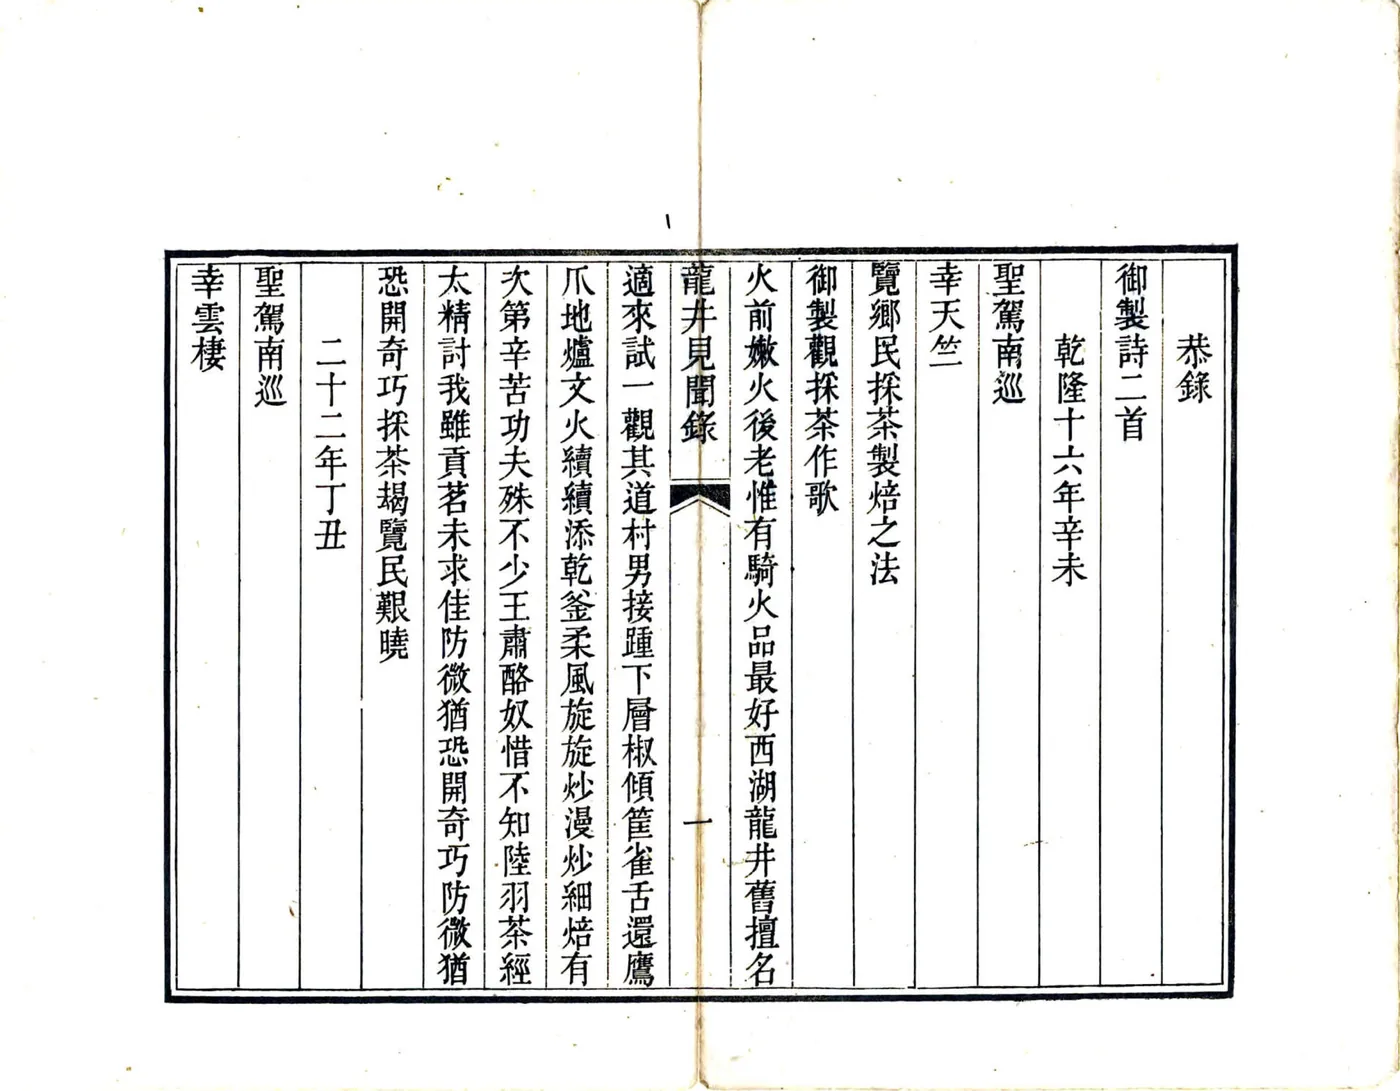 恭錄
御製詩二首
乾隆十六年辛未
聖駕南巡
幸天竺
覽鄉民採茶製焙之法
御製觀採茶作歌
火前嫩火後老惟有騎火品最好西湖龍井舊擅名
龍井見聞錄
一
適來試一觀其道村男接踵下層椒傾筐雀舌還鷹
爪地爐文火續續添乾釜柔風旋旋炒漫炒細焙有
次第辛苦功夫殊不少王肅酪奴惜不知陸羽茶經
太精討我雖貢茗未求佳防微猶恐開奇巧防微猶
恐開奇巧採茶朅覽民艱曉
二十二年丁丑
聖駕南巡
幸雲棲